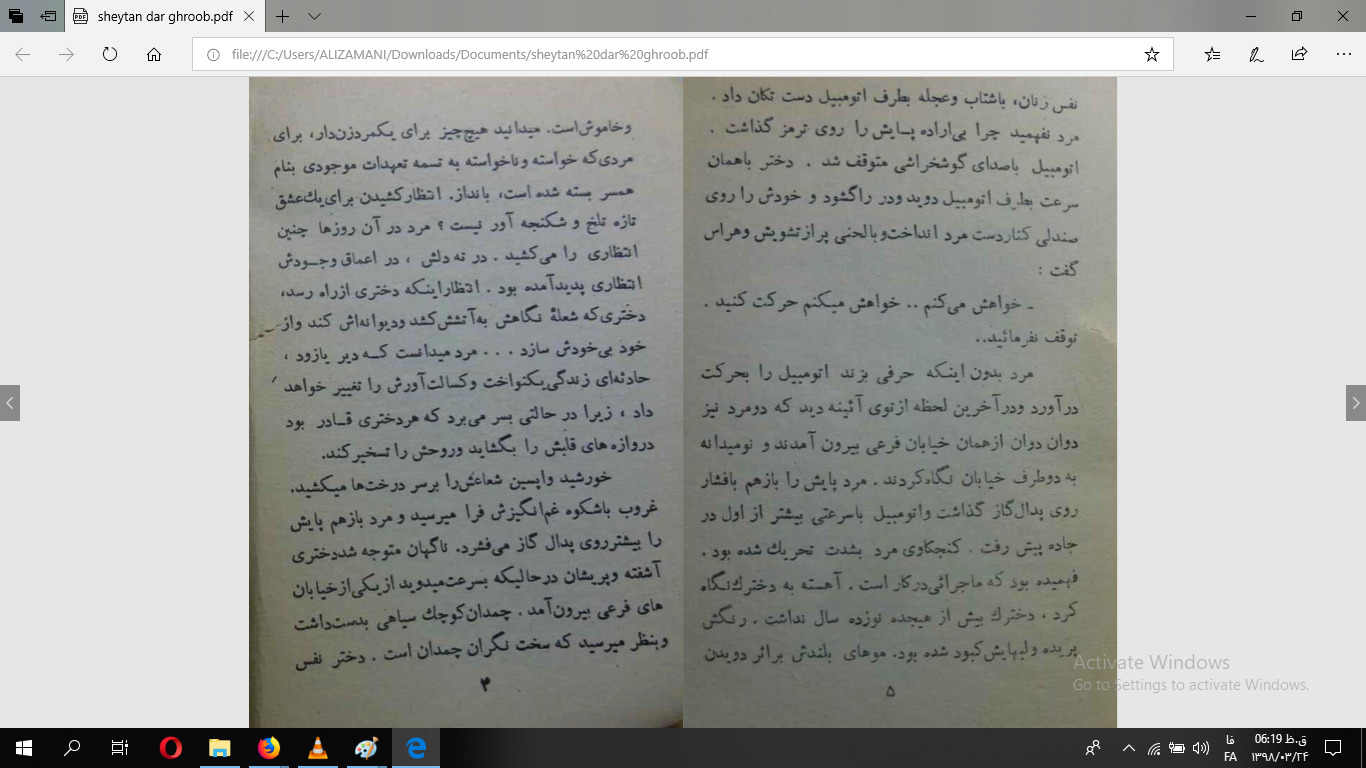 sheytan dar ghroob.pdf
file:///C:/Users/ALIZAMANI/Downloads/Documents/sheytan%20dar%20ghroob.pdf
وخاموش‌است. میدانید هیچ‌چیز برای یکمردزن‌دار، برای
مردی‌که خواسته وناخواسته به تسمه تعهدات موجودی بنام
همسر بسته شده است، بانداز. انتظارکشیدن برای‌یك‌عشق
تازه تلخ و شکنجه آور نیست ؟ مرد در آن روزها چنین
انتظاری را می‌کشید . در ته دلش ، در اعماق وجـودش
انتظاری پدیدآمده بود . انتظاراینکه دختری ازراه رسد،
دختری‌که شعلهٔ نگاهش به‌آتشش‌کشد ودیوانه‌اش کند واز
خود بی‌خودش سازد . . . مرد میدانست کـه دیر یازود ،
حادثه‌ای زندگی‌یکنواخت وکسالت‌آورش را تغییر خواهد
داد ، زیرا در حالتی بسر می‌برد که هردختری قـادر بود
دروازه های قلبش را بگشاید وروحش را تسخیرکند.
خورشید واپسین شعاعش‌را برسر درخت‌ها میکشید.
غروب باشکوه غم‌انگیزش فرا میرسید و مرد بازهم پایش
را بیشترروی پدال گاز می‌فشرد. ناگهان متوجه شددختری
آشفته وپریشان درحالیکه بسرعت‌میدوید ازیکی‌ازخیابان
های فرعی بیرون‌آمد . چمدان‌کوچك سیاهی بدست‌داشت
وبنظر میرسید که سخت نگران چمدان است . دختر نفس
۴
نفس زنان، باشتاب وعجله بطرف اتومبیل دست تکان داد .
مرد نفهمید چرا بی‌اراده پـایش را روی ترمز گذاشت .
اتومبیل باصدای گوشخراشی متوقف شد . دختر باهمان
سرعت بطرف اتومبیل دوید ودر راگشود و خودش را روی
صندلی کناردست مرد انداخت‌وبالحنی پرازتشویش وهراس
گفت :
ـ خواهش می‌کنم .. خواهش میکنم حرکت کنید .
توقف نفرمائید..
مرد بدون اینکه حرفی بزند اتومبیل را بحرکت
درآورد ودرآخرین لحظه ازتوی آئینه دید که دومرد نیز
دوان دوان ازهمان خیابان فرعی بیرون آمدند و نومیدانه
به دوطرف خیابان نگاه‌کردند . مرد پایش را بازهم بافشار
روی پدال‌گاز گذاشت واتومبیل باسرعتی بیشتر از اول در
جاده پیش رفت . کنجکاوی مرد بشدت تحریك شده بود .
فهمیده بود که ماجرائی‌درکار است . آهسته به دخترك‌نگاه
کرد ، دخترك بیش از هیجده نوزده سال نداشت . رنگش
پریده ولبهایش‌کبود شده بود. موهای بلندش براثر دویدن
۵
Activate Windows
Go to Settings to activate Windows.
فا
FA
06:19 ق.ظ
۱۳۹۸/۰۳/۲۴